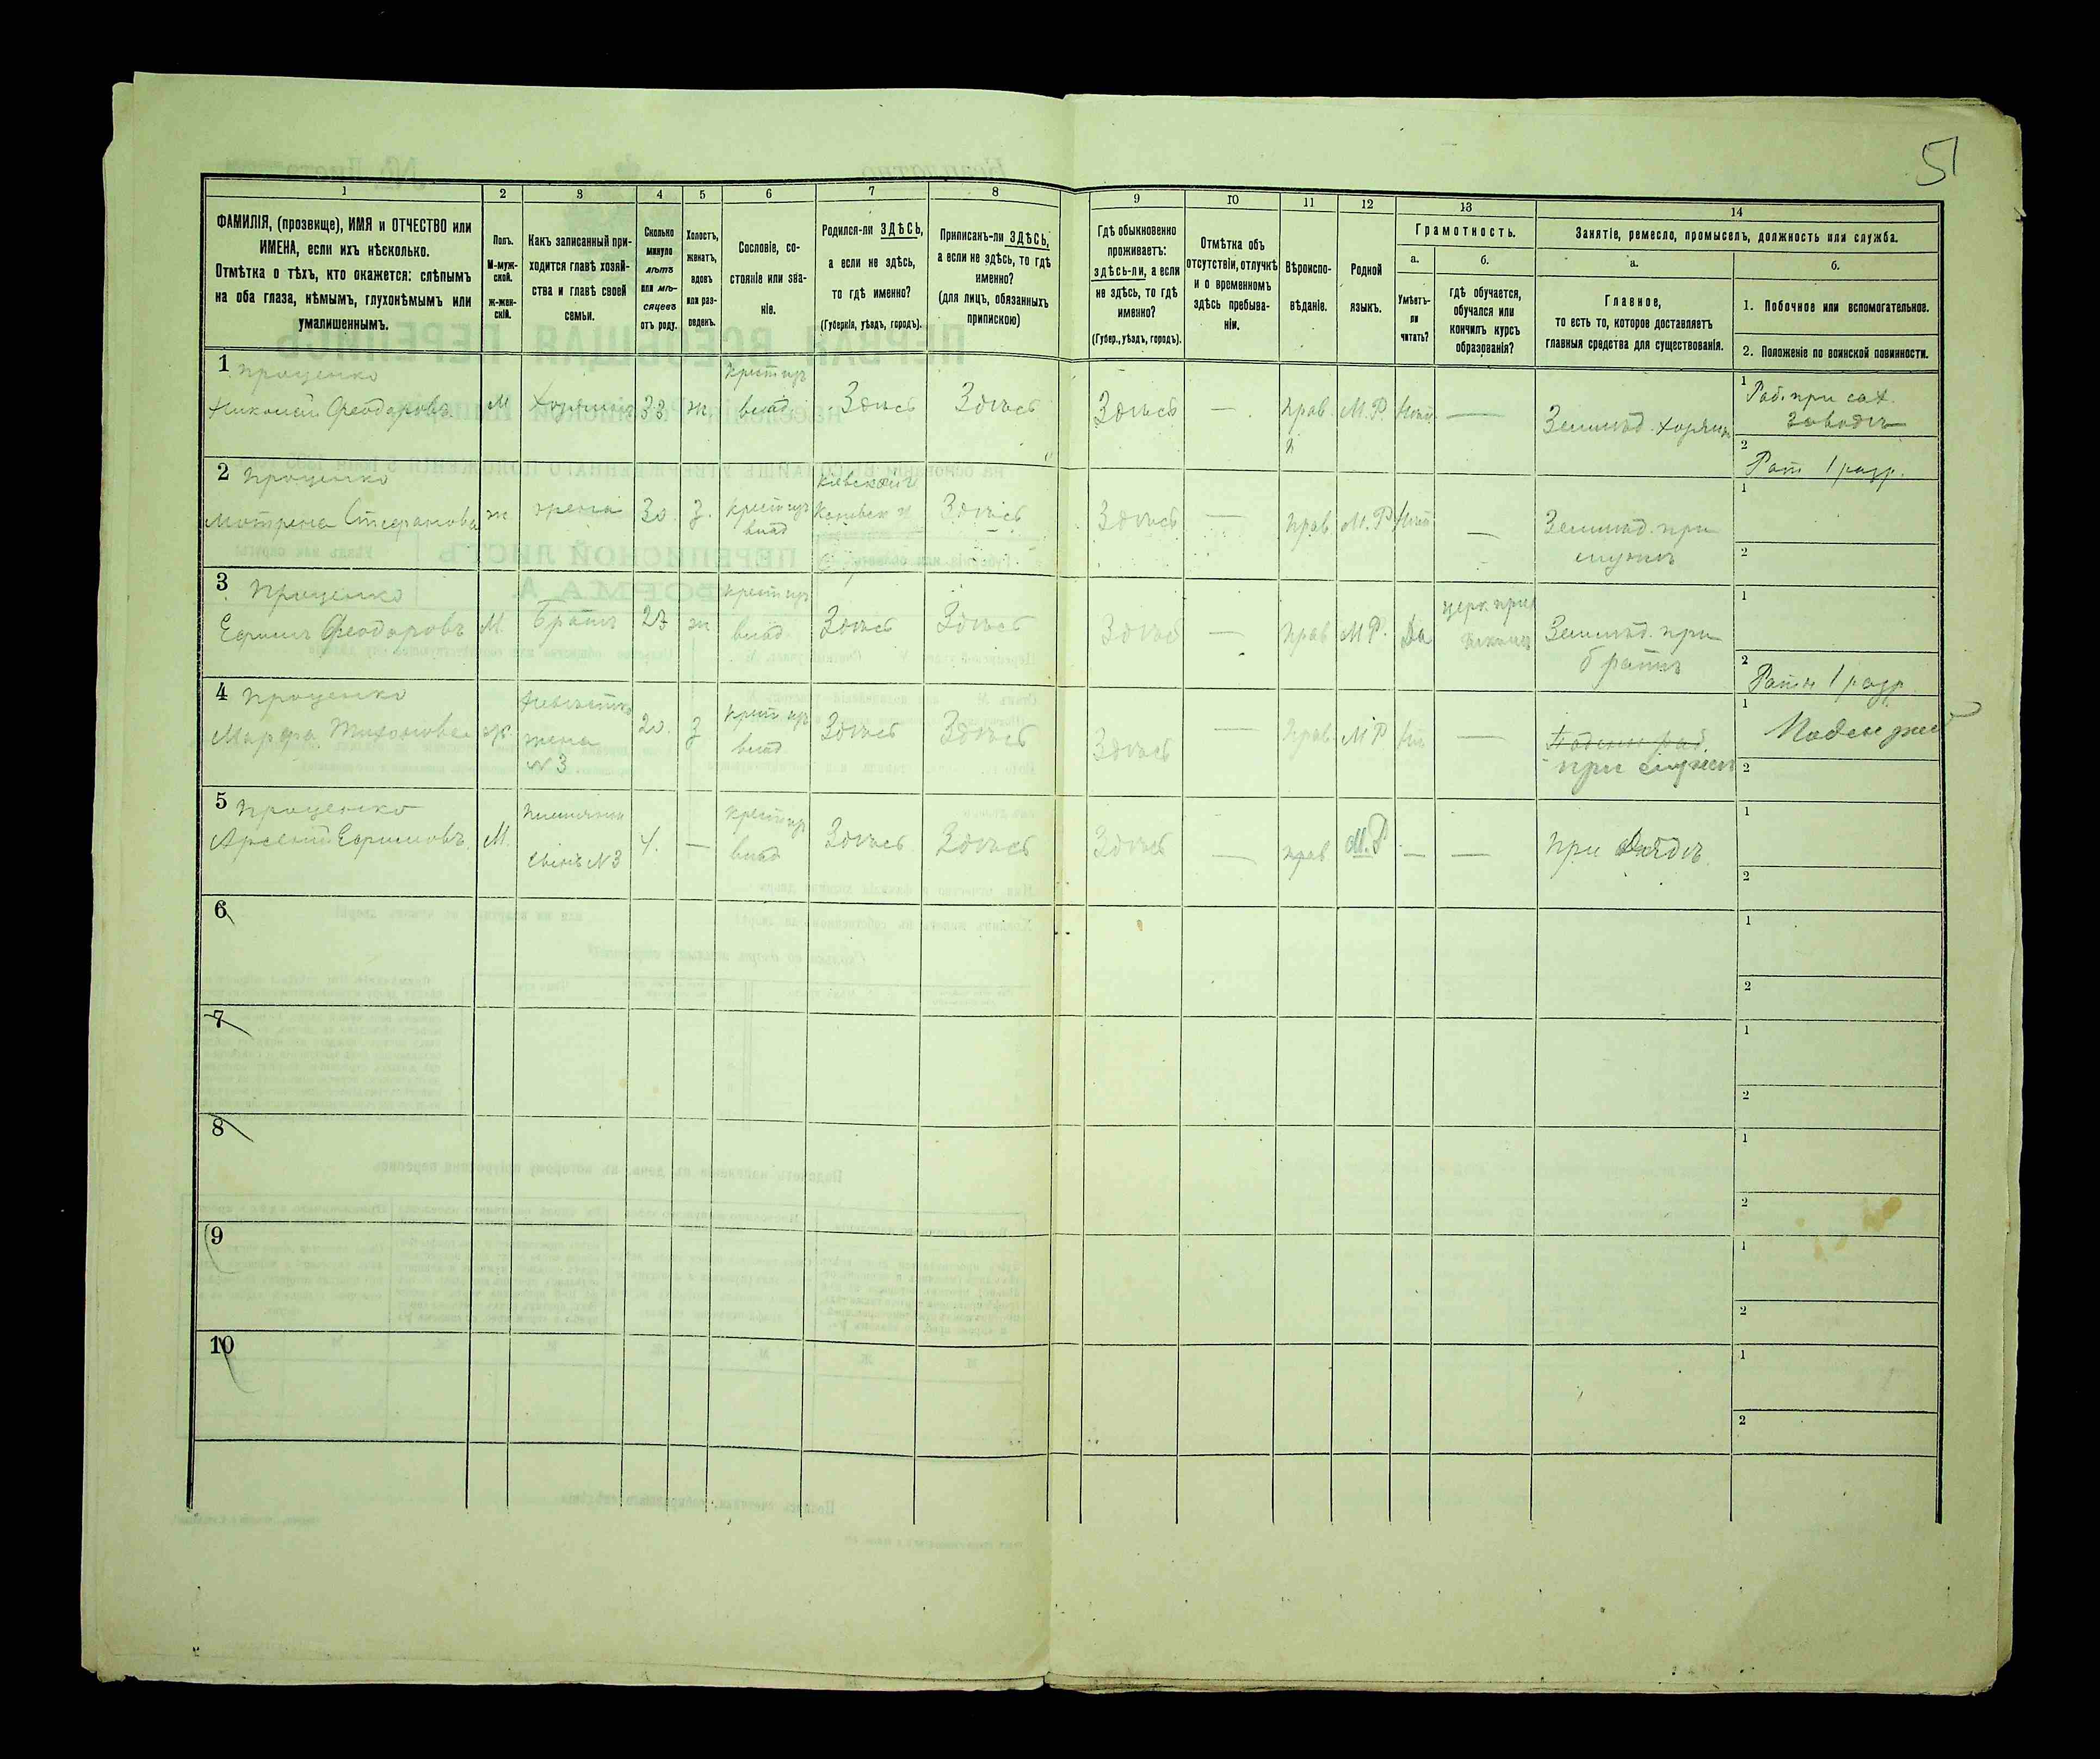 51
1
2
3
4
5
6
7
8
9
10
11
12
13
14
ФАМИЛІЯ, (прозвище), ИМЯ и ОТЧЕСТВО или
ИМЕНА, если ихъ нѣсколько.
Отмѣтка о тѣхъ, кто окажется: слѣпымъ
на оба глаза, нѣмымъ, глухонѣмымъ или
умалишеннымъ.
Полъ.
М-муж-
ской.
ж-жен-
скій.
Какъ записанный при-
ходится главѣ хозяй-
ства и главѣ своей
семьи.
Сколько
минуло
лѣтъ
или мѣ-
сяцевъ
отъ роду.
Холостъ,
женатъ,
вдовъ
или раз-
веденъ.
Сословіе, со-
стояніе или зва-
ніе.
Родился-ли ЗДѢСЬ,
а если не здѣсь,
то гдѣ именно?
(Губернія, уѣздъ, городъ).
Приписанъ-ли ЗДѢСЬ,
а если не здѣсь, то гдѣ
именно?
(для лицъ, обязанныхъ
припискою)
Гдѣ обыкновенно
проживаетъ:
здѣсь-ли, а если
не здѣсь, то гдѣ
именно?
(Губер., уѣздъ, городъ).
Отмѣтка объ
отсутствіи, отлучкѣ
и о временномъ
здѣсь пребыва-
ніи.
Вѣроиспо-
вѣданіе.
Родной
языкъ.
Грамотность.
а.
Умѣетъ-
ли
читать?
б.
гдѣ обучается,
обучался или
кончилъ курсъ
образованія?
Занятіе, ремесло, промыселъ, должность или служба.
а.
Главное,
то есть то, которое доставляетъ
главныя средства для существованія.
б.
1. Побочное или вспомогательное.
2. Положеніе по воинской повинности.
1 Проценко
Николай Феодоровъ
М
Хозяинъ
33
ж.
Крест изъ
влад.
Здѣсь
Здѣсь
Здѣсь
—
прав.
М.Р.
—
Земледѣл. хозяин
1 Раб. при сах.
заводѣ
2 Рат 1 разр.
2 Проценко
Мотрена Стефанова
ж
жена
30.
з.
крест изъ
влад
Кіевской г
Каневск у
Здѣсь
Здѣсь
—
прав
М.Р
—
Земледѣл. при
мужѣ
1
2
3 Проценко
Ефимъ Феодоровъ
М.
Братъ
27
ж
крест изъ
влад.
Здѣсь
Здѣсь
Здѣсь
—
прав
М Р.
Да
церк. прих
Земледѣл. при
братѣ
1
2 Ратн 1 разр
4 Проценко
Марфа Тихонова
ж.
Невѣстка
жена
№ 3
20.
з
крест изъ
влад.
Здѣсь
Здѣсь
Здѣсь
—
прав.
М Р
—
при мужѣ
1
2
5 Проценко
Арсеній Ефимовъ.
М.
Племянни
сынъ № 3
4.
—
крест изъ
влад
Здѣсь
Здѣсь
Здѣсь
—
прав
М.Р.
—
—
при дядѣ.
1
2
6
1
2
7
1
2
8
1
2
9
1
2
10
1
2